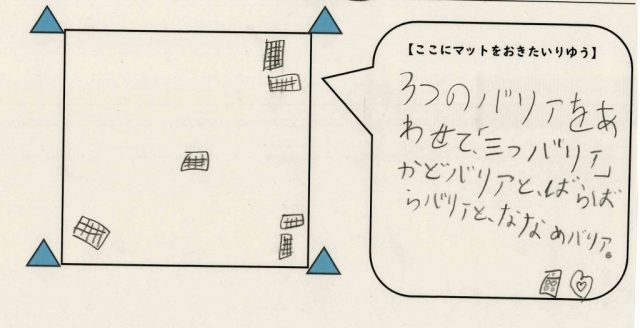 【ここにマットをおきたいりゆう】
3つのバリアをあ
わせて、「三つバリア」
かどバリアと、ばらば
らバリアと、ななめバリア。